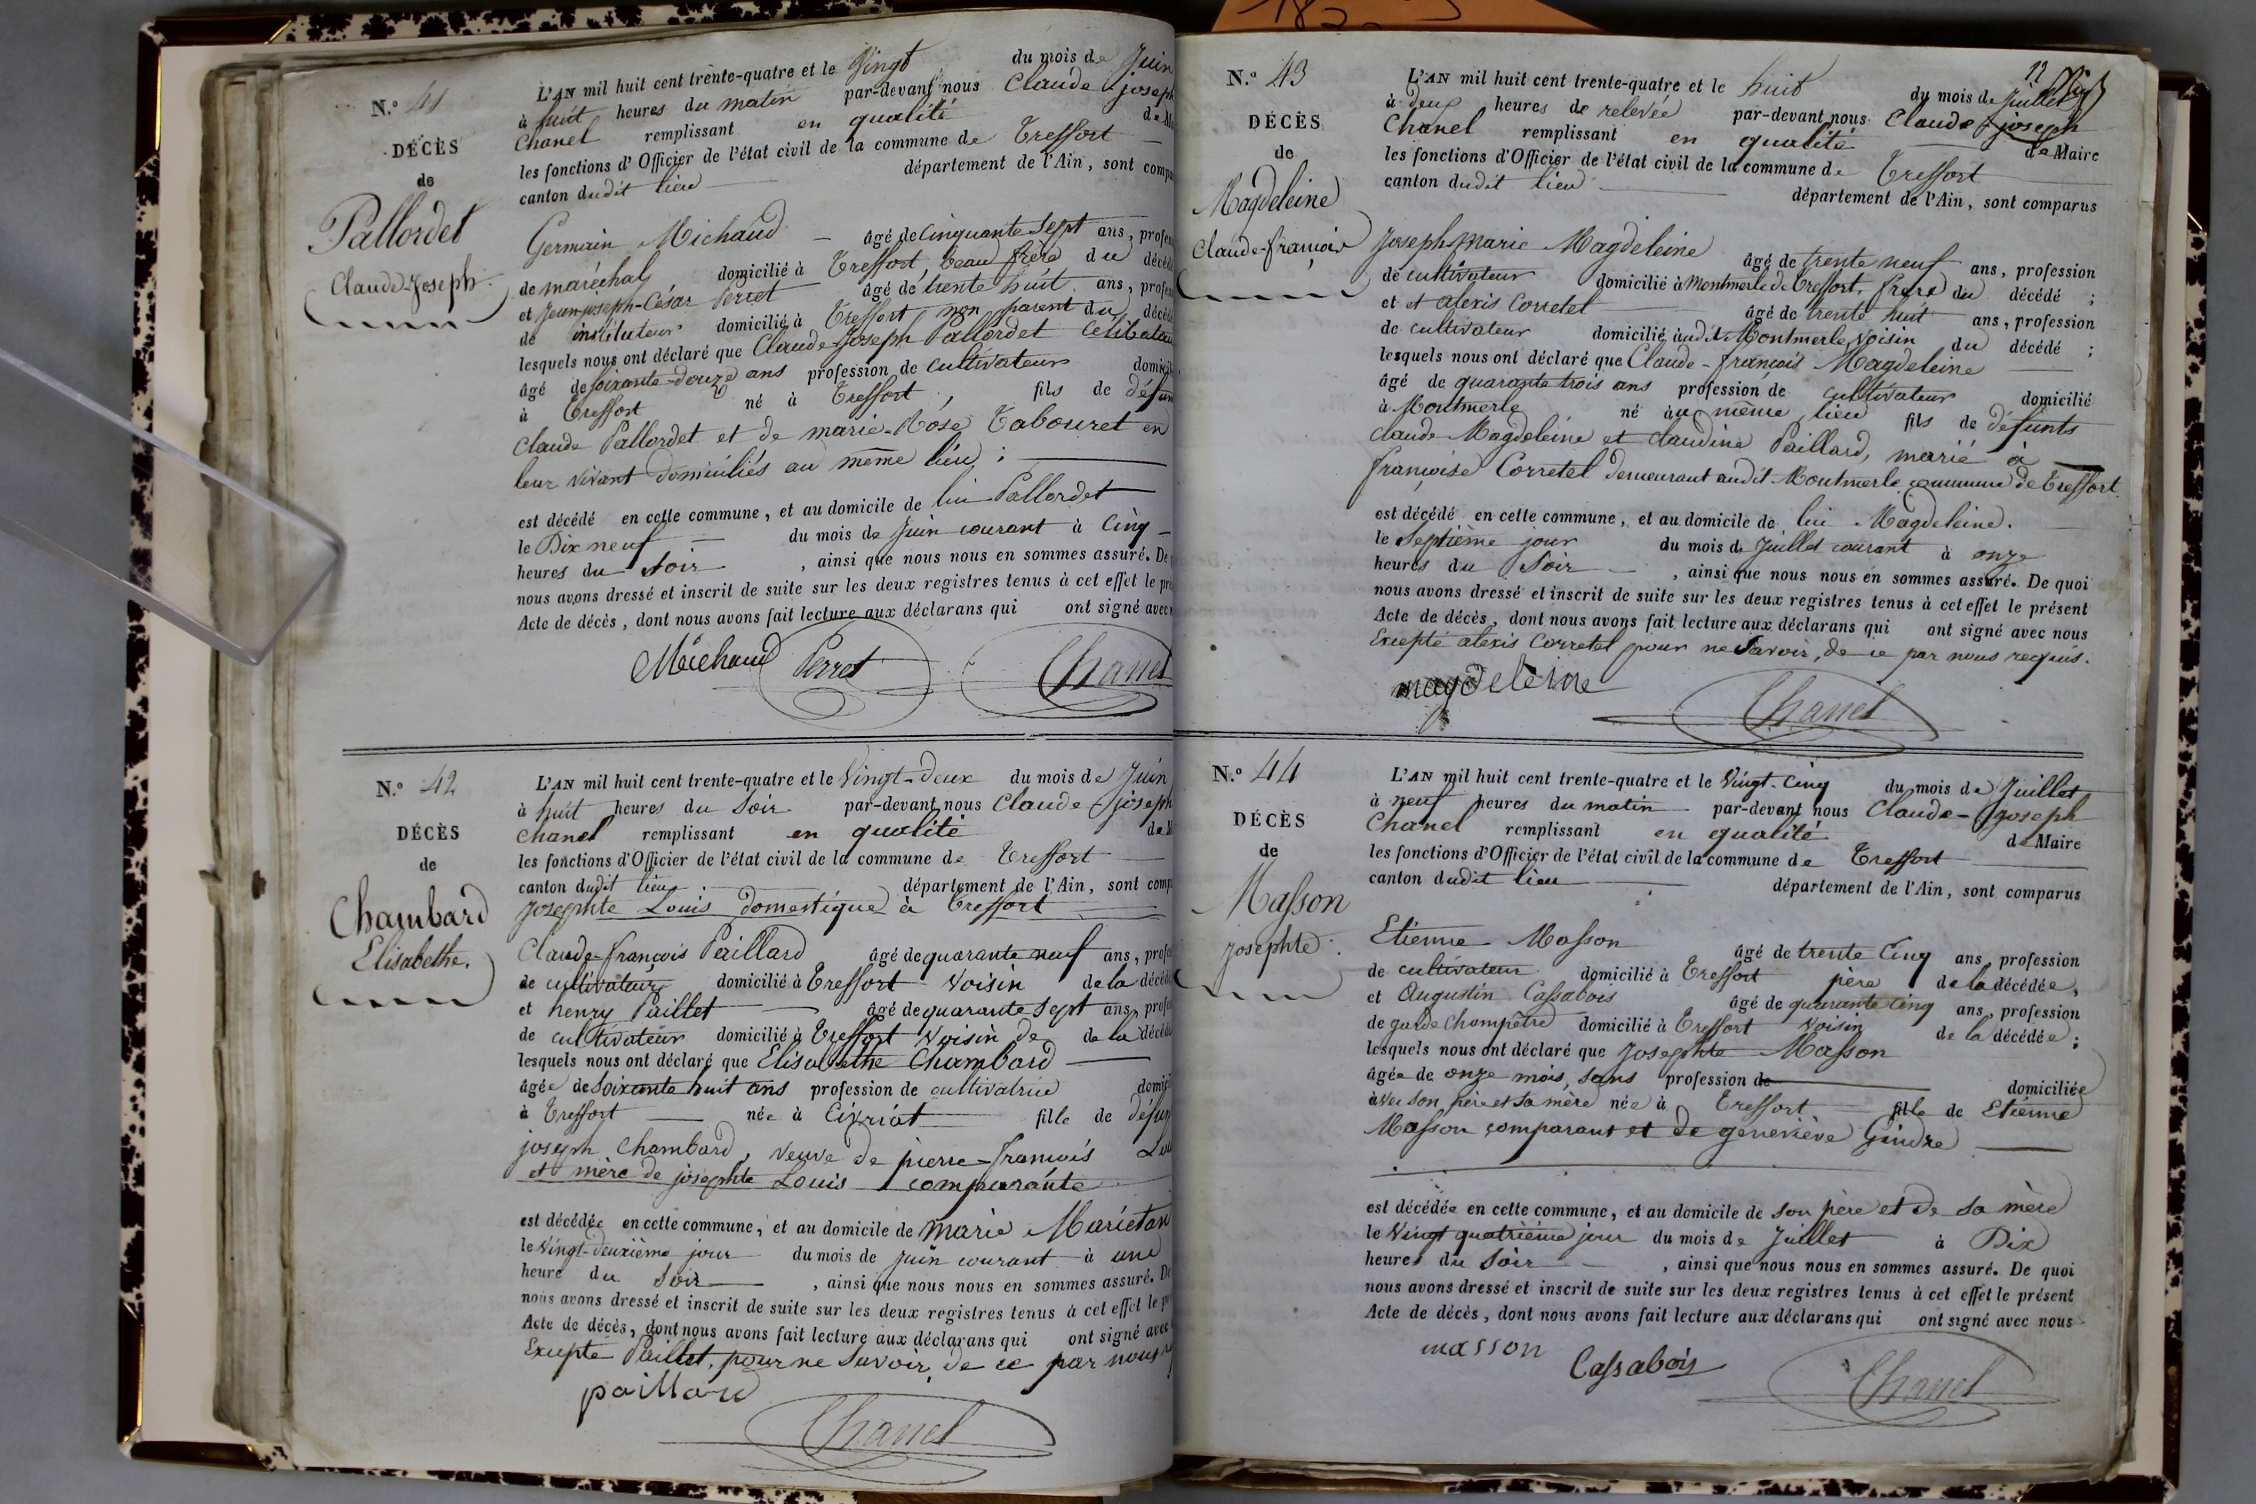 N.° 41
DÉCÈS
de
Pallordet
Claude Joseph.
L'AN mil huit cent trente-quatre et le Vingt du mois de Juin
à huit heures du matin par-devant nous Claude joseph
Chanel remplissant en qualité de
les fonctions d'Officier de l'état civil de la commune de Treffort
canton dudit lieu département de l'Ain, sont
Germain Michaud âgé de cinquante sept ans,
de maréchal domicilié à Treffort beau frère du
et Jean joseph-César Perret âgé de trente huit ans,
de instituteur domicilié à Treffort non parent du
lesquels nous ont déclaré que Claude Joseph Pallordet
âgé de soixante-douze ans profession de cultivateur
à Treffort né à Treffort, fils de
Claude Pallordet et de marie-Rose Tabouret en
leur vivant domiciliés au même lieu ;
est décédé en cette commune, et au domicile de lui Pallordet
le Dix neuf du mois de Juin courant à Cinq
heures du soir, ainsi que nous nous en sommes assuré. De
nous avons dressé et inscrit de suite sur les deux registres tenus à cet effet le
Acte de décès, dont nous avons fait lecture aux déclarans qui ont signé avec
Michaud Perret Chanel
N.° 42
DÉCÈS
de
Chambard
Elisabethe.
L'AN mil huit cent trente-quatre et le Vingt-deux du mois de Juin
à huit heures du Soir par-devant nous Claude joseph
Chanel remplissant en qualité de
les fonctions d'Officier de l'état civil de la commune de Treffort
canton dudit lieu département de l'Ain, sont
Josephte Louis domestique à Treffort
Claude-françois Paillard âgé de quarante neuf ans,
de cultivateur domicilié à Treffort Voisin de la
et henry Paillet âgé de quarante sept ans,
de cultivateur domicilié à Treffort Voisin de de la
lesquels nous ont déclaré que Elisabethe Chambard
âgée de soixante huit ans profession de cultivatrice
à Treffort née à Civriat fille de
joseph Chambard, veuve de pierre-francois
et mère de josephte Louis comparante
est décédée en cette commune, et au domicile de marie
le Vingt-deuxième jour du mois de Juin courant à une
heure du Soir, ainsi que nous nous en sommes assuré. De
nous avons dressé et inscrit de suite sur les deux registres tenus à cet effet le
Acte de décès, dont nous avons fait lecture aux déclarans qui ont signé avec
Excepté Paillet, pour ne savoir, de ce par nous
paillard
Chanel
12
N.° 43
DÉCÈS
de
Magdeleine
Claude-françois
L'AN mil huit cent trente-quatre et le huit du mois de Juillet
à deux heures de relevée par-devant nous Claude joseph
Chanel remplissant en qualité de Maire
les fonctions d'Officier de l'état civil de la commune de Treffort
canton dudit lieu département de l'Ain, sont comparus
Joseph Marie Magdeleine âgé de trente neuf ans, profession
de cultivateur domicilié à Montmerle de Treffort, frère du décédé ;
et et alexis Corretel âgé de trente huit ans, profession
de cultivateur domicilié audit Montmerle voisin du décédé ;
lesquels nous ont déclaré que Claude-françois Magdeleine
âgé de quarante trois ans profession de cultivateur domicilié
à Montmerle né au même lieu fils de défunts
Claude Magdeleine et claudine Paillard, marié à
françoise Corretel demeurant audit Montmerle commune de Treffort.
est décédé en cette commune, et au domicile de lui Magdeleine.
le Septième jour du mois de Juillet courant à onze
heures du Soir, ainsi que nous nous en sommes assuré. De quoi
nous avons dressé et inscrit de suite sur les deux registres tenus à cet effet le présent
Acte de décès, dont nous avons fait lecture aux déclarans qui ont signé avec nous
Excepté alexis Corretel pour ne Savoir, de ce par nous requis.
magdeleine
Chanel
N.° 44
DÉCÈS
de
Masson
josephte.
L'AN mil huit cent trente-quatre et le Vingt-Cinq du mois de Juillet
à neuf heures du matin par-devant nous Claude-joseph
Chanel remplissant en qualité de Maire
les fonctions d'Officier de l'état civil de la commune de Treffort
canton dudit lieu département de l'Ain, sont comparus
Etienne Masson âgé de trente Cinq ans profession
de cultivateur domicilié à Treffort père de la décédée,
et Augustin Cassabois âgé de quarante cinq ans, profession
de garde Champêtre domicilié à Treffort Voisin de la décédée ;
lesquels nous ont déclaré que Josephte Masson
âgée de onze mois, sans profession de domiciliée
avec son père et sa mère née à Treffort fille de Etienne
Masson comparant et de geneviève Gindre
est décédée en cette commune, et au domicile de son père et de sa mère
le Vingt quatrième jour du mois de Juillet à Dix
heures du Soir, ainsi que nous nous en sommes assuré. De quoi
nous avons dressé et inscrit de suite sur les deux registres tenus à cet effet le présent
Acte de décès, dont nous avons fait lecture aux déclarans qui ont signé avec nous
masson Cassabois Chanel